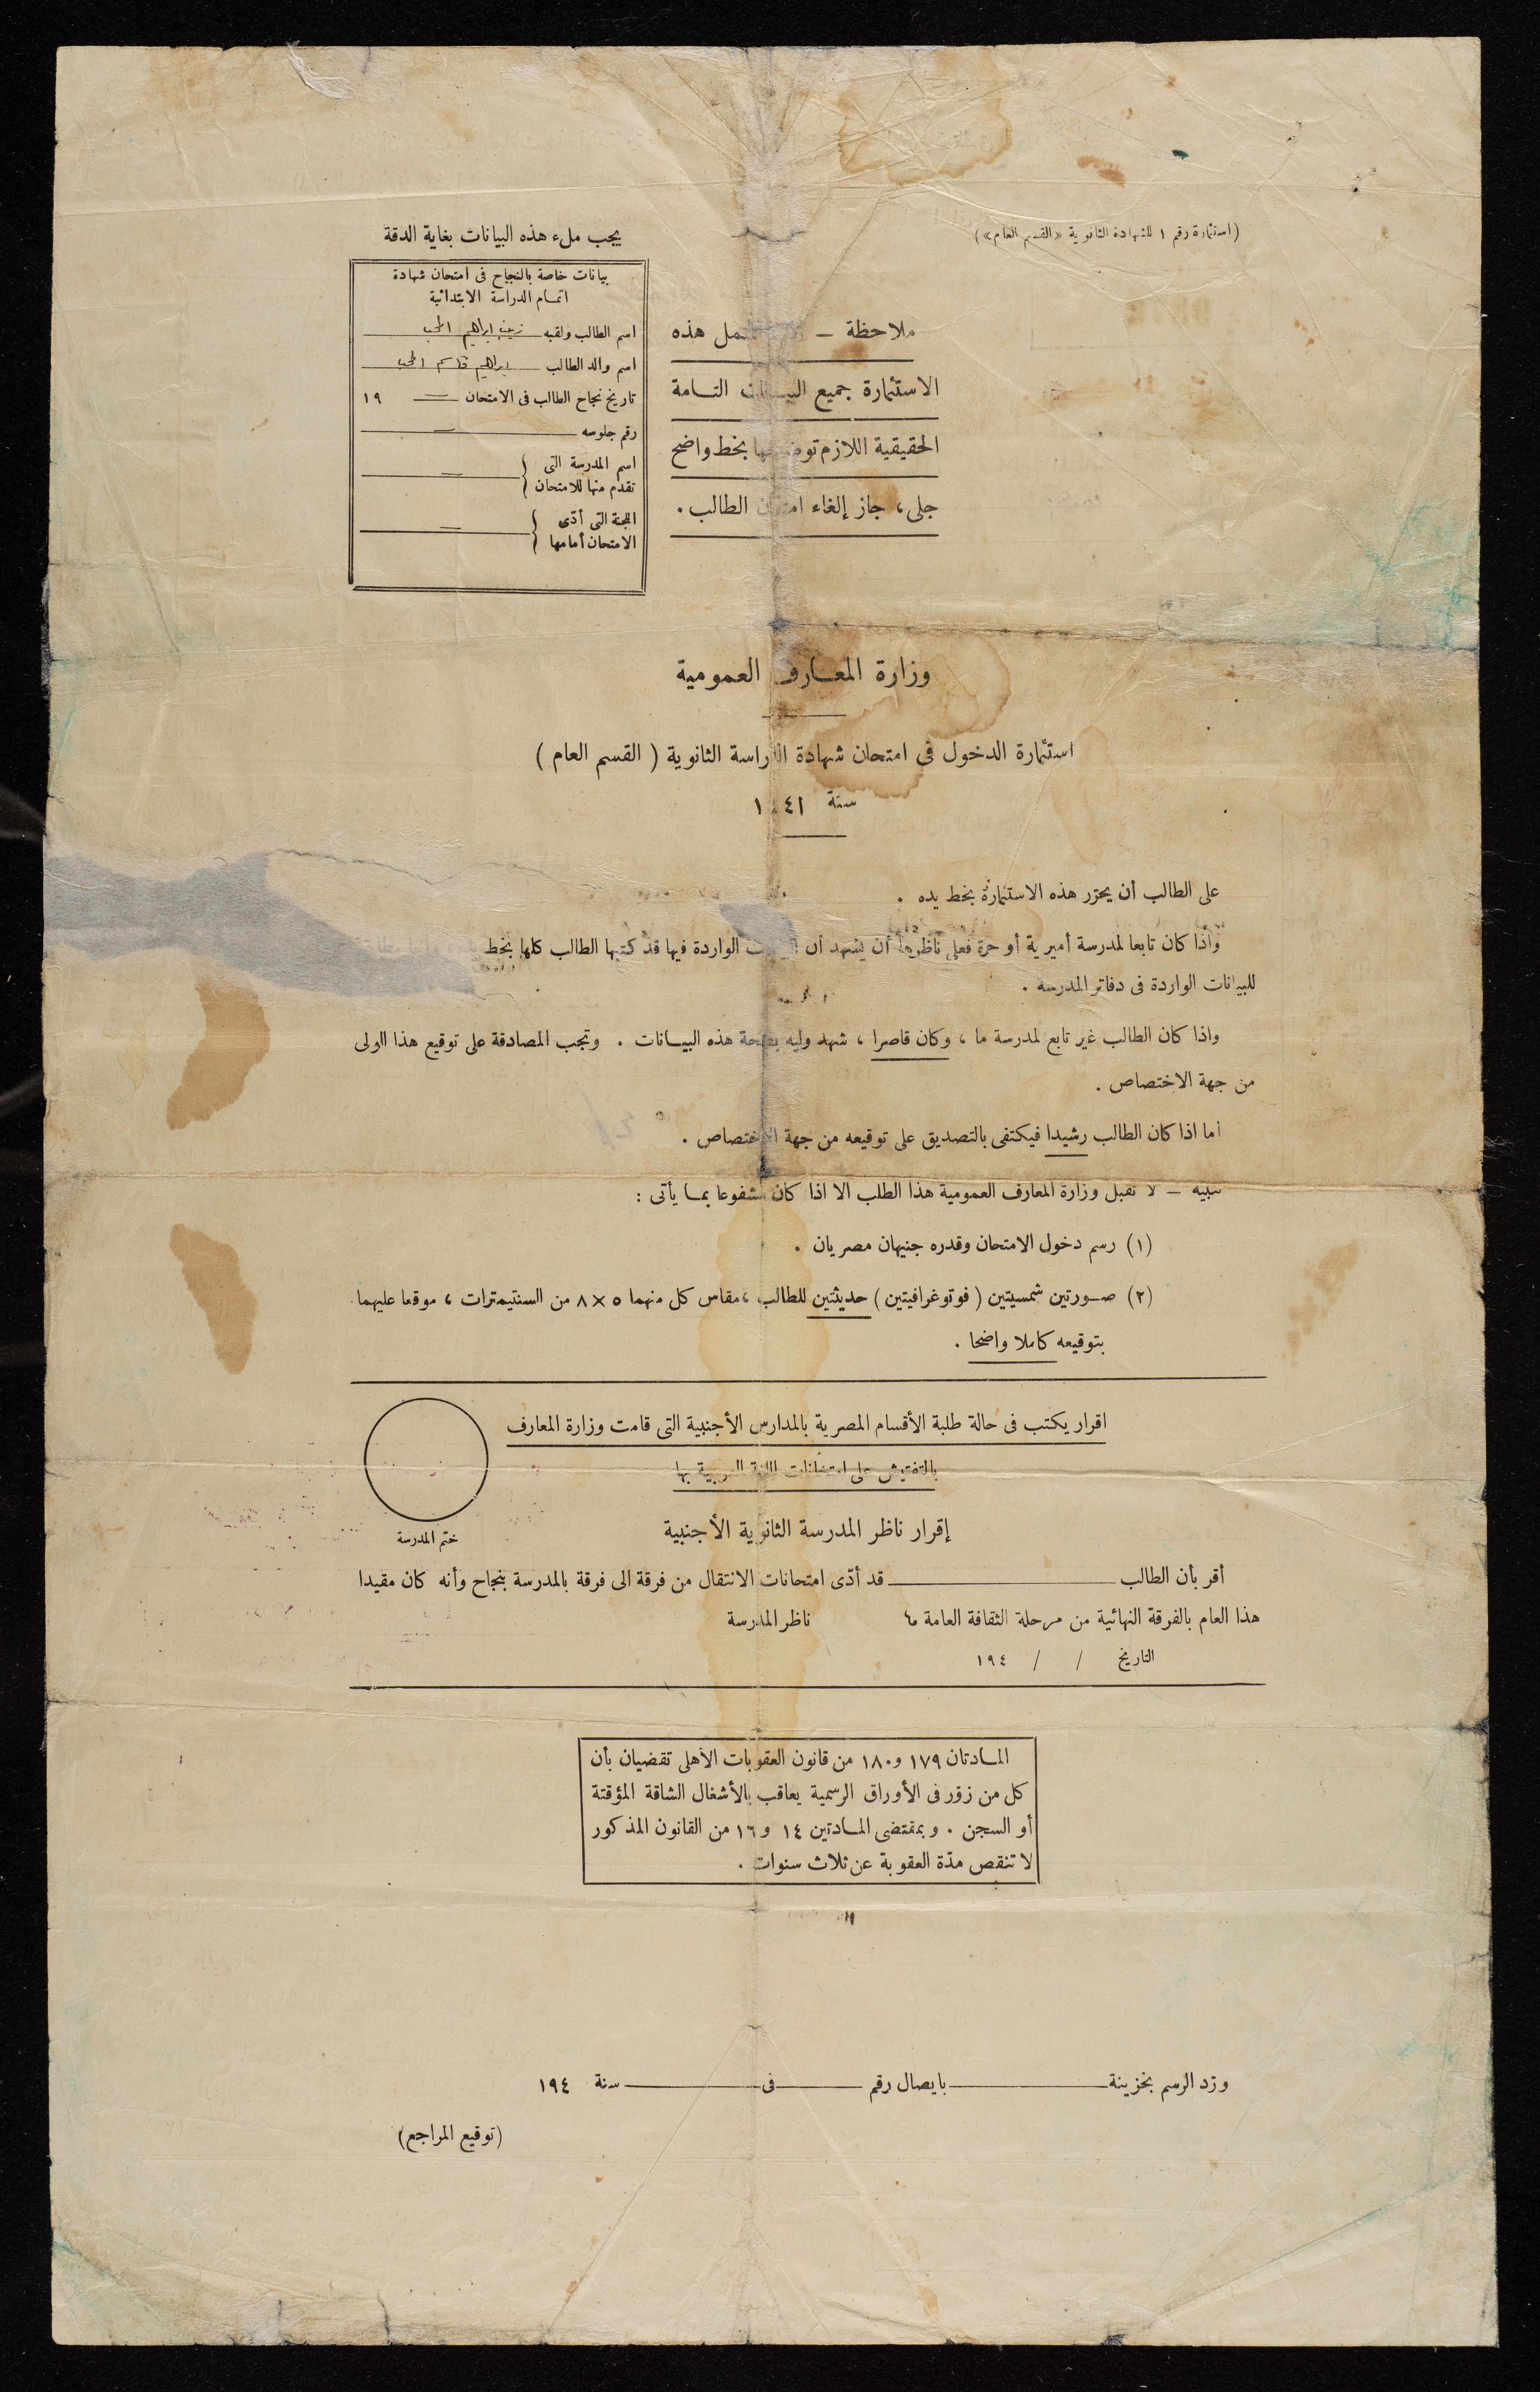 (استمارة رقم ١ للشهادة الثانوية «القسم العام»)
يجب ملء هذه البيانات بغاية الدقة
بيانات خاصة بالنجاح فى امتحان شهادة
اتمام الدراسة الابتدائية
اسم الطالب ولقبه زينب ابراهيم
اسم والد الطالب ابراهيم قاسم
تاريخ نجاح الطالب فى الامتحان — ١٩
رقم جلوسه —
اسم المدرسة التى
تقدم منها للامتحان —
اللجنة التى أدّى
الامتحان أمامها —
ملاحظة — هذه
الاستمارة جميع البيانات التامة
الحقيقية اللازم توضيحها بخط واضح
جلى، جاز إلغاء امتحان الطالب.
وزارة المعارف العمومية
استمارة الدخول فى امتحان شهادة الدراسة الثانوية (القسم العام)
سنة ١٩٤١
على الطالب أن يحرّر هذه الاستمارة بخط يده.
وإذا كان تابعا لمدرسة أميرية أو حرة فعلى ناظرها أن يشهد أن البيانات الواردة فيها قد كتبها الطالب كلها بخط
للبيانات الواردة فى دفاتر المدرسة.
واذا كان الطالب غير تابع لمدرسة ما، وكان قاصرا، شهد وليه بصحة هذه البيانات. وتجب المصادقة على توقيع هذا الولى
من جهة الاختصاص.
أما اذا كان الطالب رشيدا فيكتفى بالتصديق على توقيعه من جهة الاختصاص.
تنبيه — لا تقبل وزارة المعارف العمومية هذا الطلب الا اذا كان مشفوعا بما يأتى:
(١) رسم دخول الامتحان وقدره جنيهان مصريان.
(٢) صورتين شمسيتين (فوتوغرافيتين) حديثتين للطالب، مقاس كل منهما ٥×٨ من السنتيمترات، موقعا عليهما
بتوقيعه كاملا واضحا.
اقرار يكتب فى حالة طلبة الأقسام المصرية بالمدارس الأجنبية التى قامت وزارة المعارف
بالتفتيش على امتحانات اللغة العربية بها
ختم المدرسة
إقرار ناظر المدرسة الثانوية الأجنبية
أقر بأن الطالب قد أدّى امتحانات الانتقال من فرقة الى فرقة بالمدرسة بنجاح وأنه كان مقيدا
هذا العام بالفرقة النهائية من مرحلة الثقافة العامة ما ناظر المدرسة
التاريخ / / ١٩٤
المادتان ١٧٩ و١٨٠ من قانون العقوبات الأهلى تقضيان بأن
كل من زوّر فى الأوراق الرسمية يعاقب بالأشغال الشاقة المؤقتة
أو السجن. وبمقتضى المادتين ١٤ و١٦ من القانون المذكور
لا تنقص مدّة العقوبة عن ثلاث سنوات.
ورّد الرسم بخزينة بايصال رقم فى سنة ١٩٤
(توقيع المراجع)